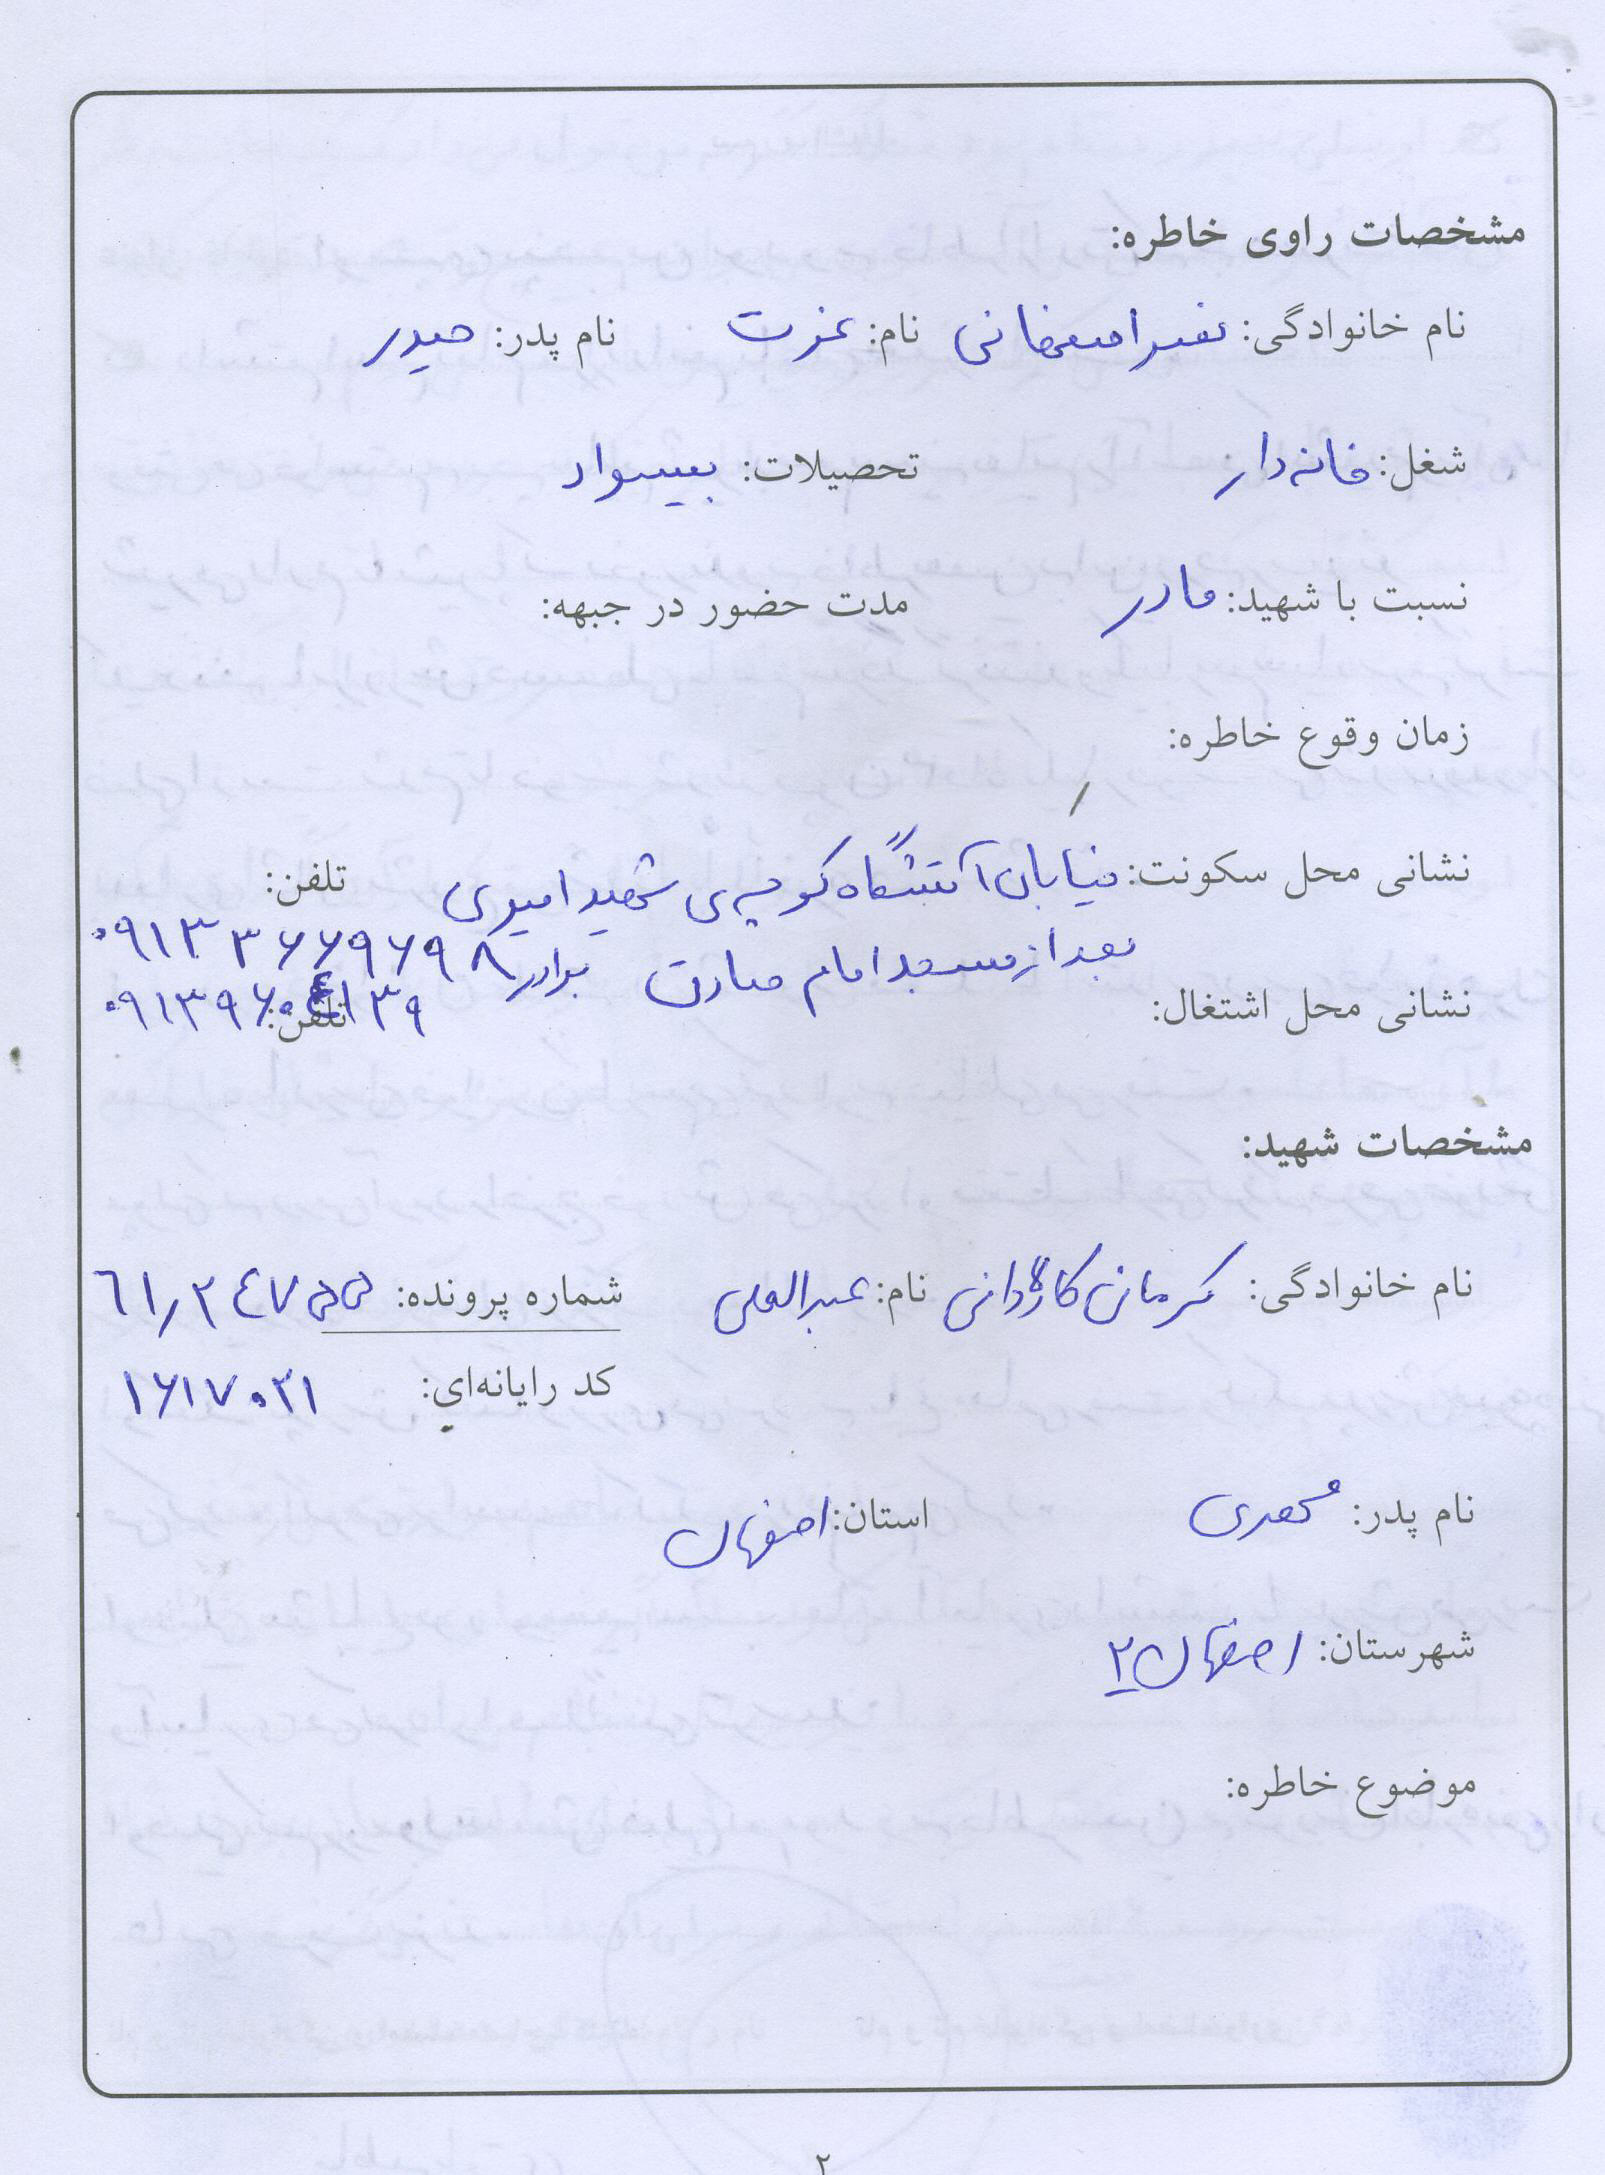 مشخصات راوی خاطره:
نام خانوادگی: نصیر اصفهانی نام: عزت نام پدر: حیدر
شغل: خانه‌دار تحصیلات: بیسواد
نسبت با شهید: مادر مدت حضور در جبهه:
زمان وقوع خاطره:
نشانی محل سکونت: خیابان آتشگاه کوچه‌ی شهید امیدی تلفن:
بعد از مسجد امام صادق برادر ۰۹۱۳۳۶۶۹۶۹۸
نشانی محل اشتغال: تلفن: ۰۹۱۳۹۶۰۴۱۳۹
مشخصات شهید:
نام خانوادگی: کرمانی کاژدانی نام: عبدالعلی شماره پرونده: ۶۱/۲۴۷۵۵
کد رایانه‌اي: ۱۶۱۷۰۲۱
نام پدر: مهدی استان: اصفهان
شهرستان: اصفهان ۲
موضوع خاطره:
۲